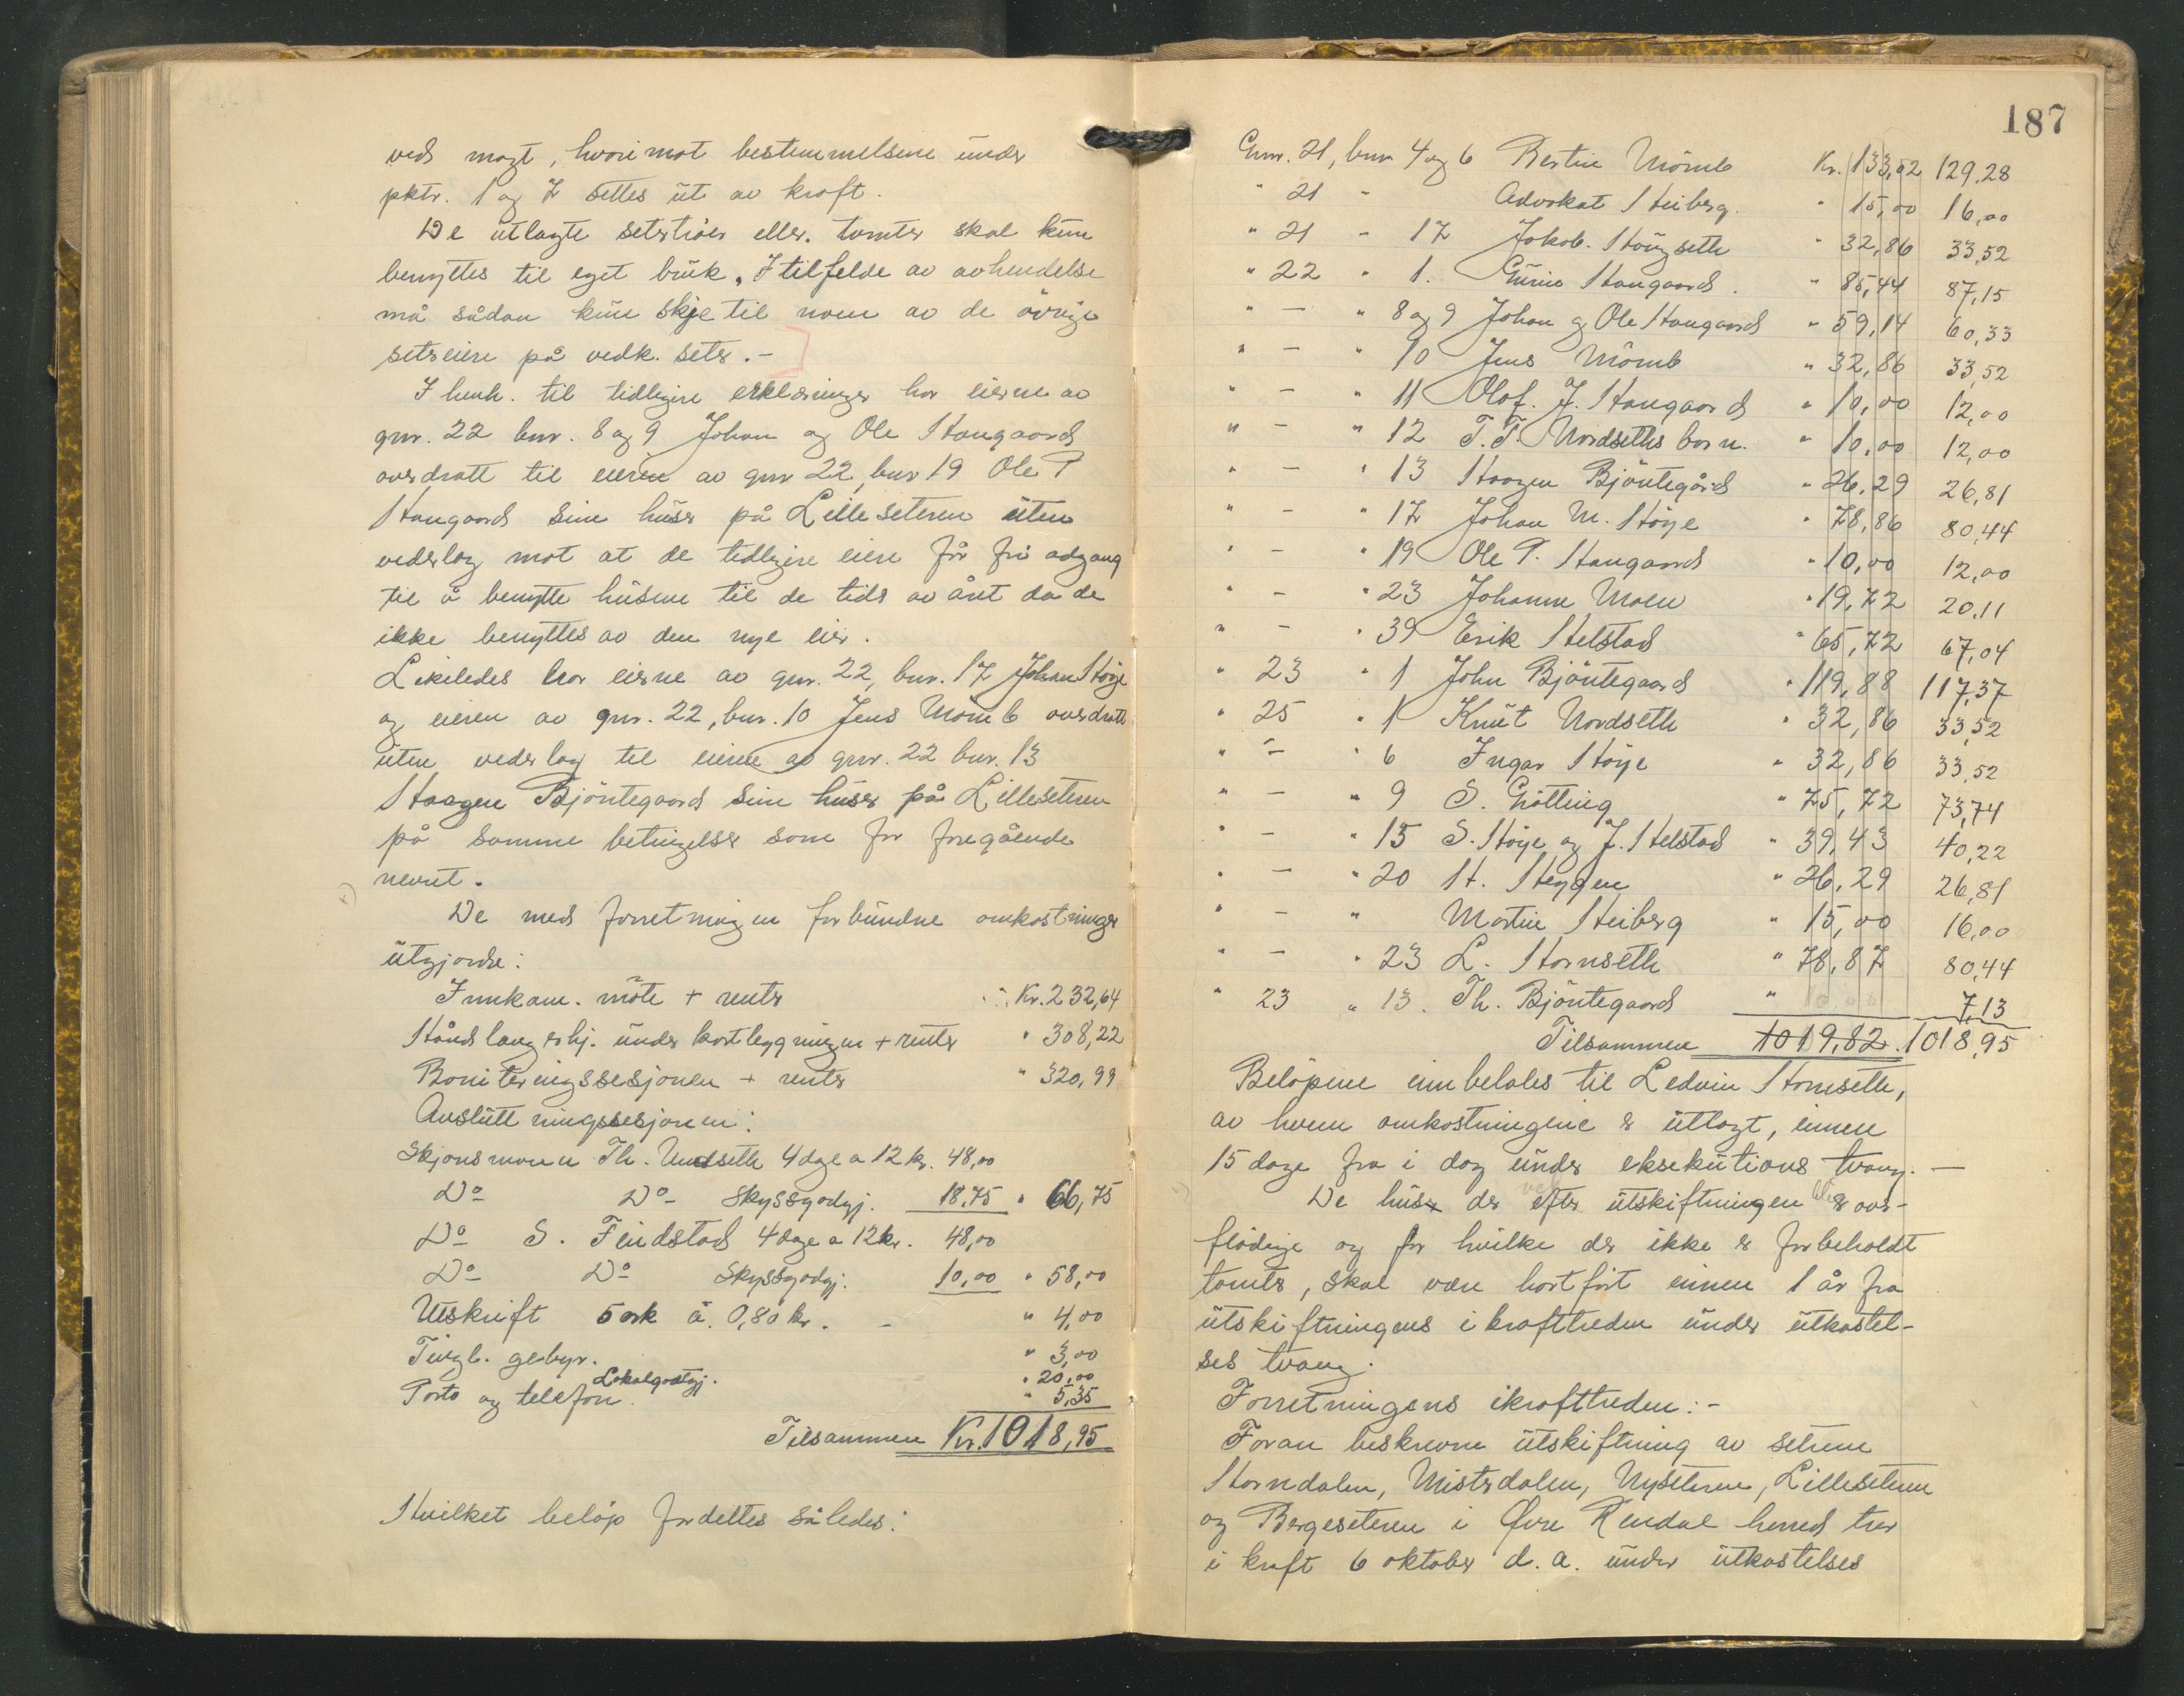 ved magt, hvorimot bestemmelsene under
pktr. 1 og 7 settes ut av kraft.
De utlagte setertåer eller tomter skal kun
benyttes til eget bruk. I tilfelde av avhendelse
må sådan kun skje til noen av de övrige
setereiere på vedk. seter.-
I henh. til tidligere erklæringer har eierne av
gnr. 22 bnr. 8 og 9 Johan og Ole Haugaard
overdratt til eieren av gnr 22, bnr 19 Ole P.
Haugaard sine huser på Lilleseteren uten
vederlag mot at de tidligere eiere får fri adgang
til å benytte husene til de tider av året da de
ikke benyttes av den nye eier.
Likeledes har eierne av gnr. 22, bnr. 17 Johan Höye
og eieren av gnr. 22, bnr. 10 Jens Mömb overdratt
uten vederlag til eieren av gnr. 22 bnr. 13
Haagen Bjöntegaard sine huser på Lilleseteren
på samme betingelser som for foregående
nevnt.
De med forretningen forbundne omkostninger
utgjorde:
Innkom. möte + renter Kr. 232,64
Håndlangerhj. under kartleggningen + renter " 308,22
Boniteringssesjonen + renter " 320,99
Avslutningssesjonen:
Skjönsmann Th. Undseth 4 dage a 12 kr. 48,00
Do Do Skyssgodtgj. 18,75 " 66,75
Do S. Findstad 4 dage a 12 kr. 48,00
Do Do Skyssgodtgj. 10,00 " 58,00
Utskrift 5 ark á 0,80 kr. - " 4,00
Tingl. gebyr. " 3,00
Lokalgodtgj. " 20,00
Porto og telefon. " 5,35
Tilsammen Kr. 1018,95
Hvilket belöp fordeltes således:
187
Gnr. 21, bnr 4 og 6 Bertine Mömb Kr. 133,52 129,28
" 21 - Advokat Heiberg. " 15,00 16,00
" 21 - 17 Jakob Haugseth " 32,86 33,52
" 22 " 1. Gurine Haugaard. " 85,44 87,15
" - " 8 og 9 Johan og Ole Haugaard " 59,14 60,33
" - " 10 Jens Mömb " 32,86 33,52
" - " 11 Olof. J. Haugaard " 10,00 12,00
" - " 12 T. T. Nordseths barn. " 10,00 12,00
" - " 13 Haagen Bjöntegård " 26,29 26,81
" - " 17 Johan M. Höye " 78,86 80,44
" - " 19 Ole P. Haugaard " 10,00 12,00
" - " 23 Johanne Moen " 19,72 20,11
" - " 39 Erik Helstad " 65,72 67,04
" 23 " 1 John Bjöntegaard " 119,88 117,37
" 25 " 1 Knut Nordseth " 32,86 33,52
" - " 6 Ingar Höye " 32,86 33,52
" - " 9 S. Götting " 75,72 73,74
" - " 15 S. Höye og J. Helstad " 39,43 40,22
" - " 20 H. Heggen " 26,29 26,81
" - " Martin Heiberg " 15,00 16,00
" - " 23 L. Hornseth " 78,87 80,44
" 23 " 13. Th. Bjöntegaard " 7,13
Tilsammen 1019,82. 1018,95
Belöpene innbetales til Ledvin Hornseth,
av hvem omkostningene er utlagt, innen
15 dage fra i dag under eksekutions tvang. -
De huser der ved efter utskiftningen blir over-
flödige og for hvilke der ikke er forbeholdt
tomter, skal være bortfört innen 1 år fra
utskiftningens ikrafttreden under utkastel-
ses tvang.
Forretningens ikrafttreden:-
Foran beskrevne utskiftning av setrene
Horndalen, Misterdalen, Nyseteren, Lilleseteren
og Bergeseteren i Øvre Rendal herred trer
i kraft 6 oktober d. a. under utkastelses